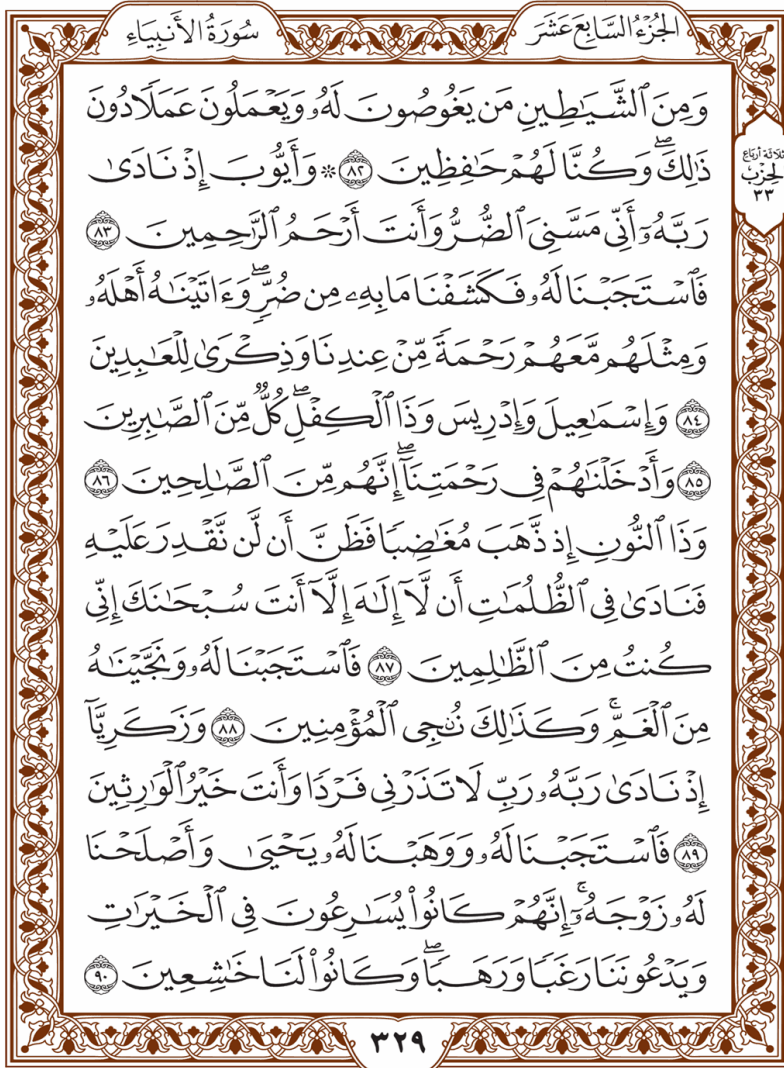 الجُزْءُ السَّابِعَ عَشَرَ
سُورَةُ الأَنبِيَاءِ
وَمِنَ ٱلشَّيَٰطِينِ مَن يَغُوصُونَ لَهُۥ وَيَعۡمَلُونَ عَمَلٗا دُونَ
ذَٰلِكَۖ وَكُنَّا لَهُمۡ حَٰفِظِينَ ٨٢ ۞ وَأَيُّوبَ إِذۡ نَادَىٰ
رَبَّهُۥٓ أَنِّي مَسَّنِيَ ٱلضُّرُّ وَأَنتَ أَرۡحَمُ ٱلرَّٰحِمِينَ ٨٣
فَٱسۡتَجَبۡنَا لَهُۥ فَكَشَفۡنَا مَا بِهِۦ مِن ضُرّٖۖ وَءَاتَيۡنَٰهُ أَهۡلَهُۥ
وَمِثۡلَهُم مَّعَهُمۡ رَحۡمَةٗ مِّنۡ عِندِنَا وَذِكۡرَىٰ لِلۡعَٰبِدِينَ
٨٤ وَإِسۡمَٰعِيلَ وَإِدۡرِيسَ وَذَا ٱلۡكِفۡلِۖ كُلّٞ مِّنَ ٱلصَّٰبِرِينَ
٨٥ وَأَدۡخَلۡنَٰهُمۡ فِي رَحۡمَتِنَآۖ إِنَّهُم مِّنَ ٱلصَّٰلِحِينَ ٨٦
وَذَا ٱلنُّونِ إِذ ذَّهَبَ مُغَٰضِبٗا فَظَنَّ أَن لَّن نَّقۡدِرَ عَلَيۡهِ
فَنَادَىٰ فِي ٱلظُّلُمَٰتِ أَن لَّآ إِلَٰهَ إِلَّآ أَنتَ سُبۡحَٰنَكَ إِنِّي
كُنتُ مِنَ ٱلظَّٰلِمِينَ ٨٧ فَٱسۡتَجَبۡنَا لَهُۥ وَنَجَّيۡنَٰهُ
مِنَ ٱلۡغَمِّۚ وَكَذَٰلِكَ نُـۨجِي ٱلۡمُؤۡمِنِينَ ٨٨ وَزَكَرِيَّآ
إِذۡ نَادَىٰ رَبَّهُۥ رَبِّ لَا تَذَرۡنِي فَرۡدٗا وَأَنتَ خَيۡرُ ٱلۡوَٰرِثِينَ
٨٩ فَٱسۡتَجَبۡنَا لَهُۥ وَوَهَبۡنَا لَهُۥ يَحۡيَىٰ وَأَصۡلَحۡنَا
لَهُۥ زَوۡجَهُۥٓۚ إِنَّهُمۡ كَانُواْ يُسَٰرِعُونَ فِي ٱلۡخَيۡرَٰتِ
وَيَدۡعُونَنَا رَغَبٗا وَرَهَبٗاۖ وَكَانُواْ لَنَا خَٰشِعِينَ ٩٠
ثلاثة أرباع
الحِزْب
٣٣
٣٢٩